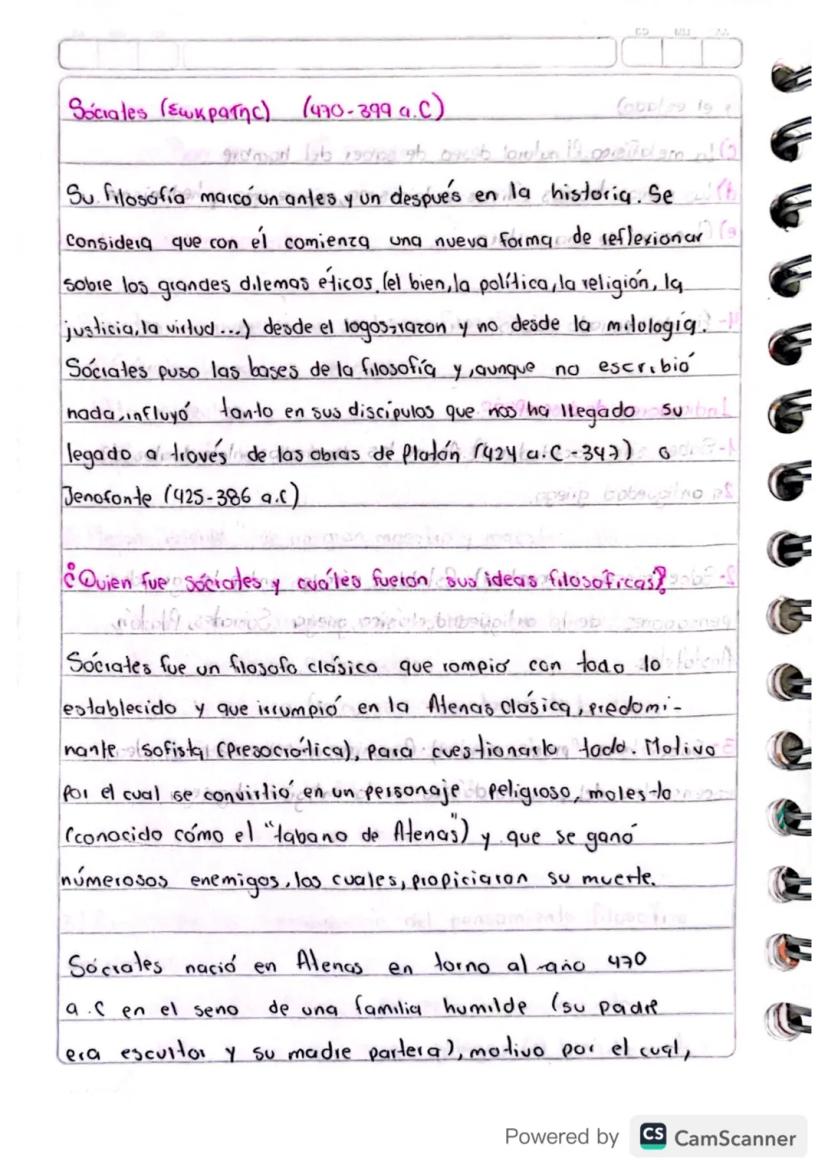 Sócrates (Σωκρατης) (470-399 a.C)
Su filosofía marcó un antes y un después en la historia. Se
considera que con él comienza una nueva forma de reflexionar
sobre los grandes dilemas éticos, (el bien, la política, la religión, la
justicia, la virtud ...) desde el logos=razon y no desde la mitología.
Sócrates puso las bases de la filosofía y, aunque no escribió
nada, influyó tanto en sus discípulos que nos ha llegado su
legado a través de las obras de Platón (424 a.C-347) o
Jenofonte (425-386 a.C)
¿Quien fue sócrates y cuáles fueron sus ideas filosoficas?
Sócrates fue un filosofo clásico que rompió con todo lo
establecido y que irrumpió en la Atenas Clásica, predomi-
nante sofista (presocrática), para cuestionarlo todo. Motivo
por el cual se convirtió en un personaje peligroso, molesto
(conocido cómo el "tabano de Atenas") y que se ganó
númerosos enemigos, los cuales, propiciaron su muerte.
Sócrates nació en Atenas en torno al año 470
a.C en el seno de una familia humilde (su padre
era escultor y su madre partera), motivo por el cual,
Powered by CS CamScanner